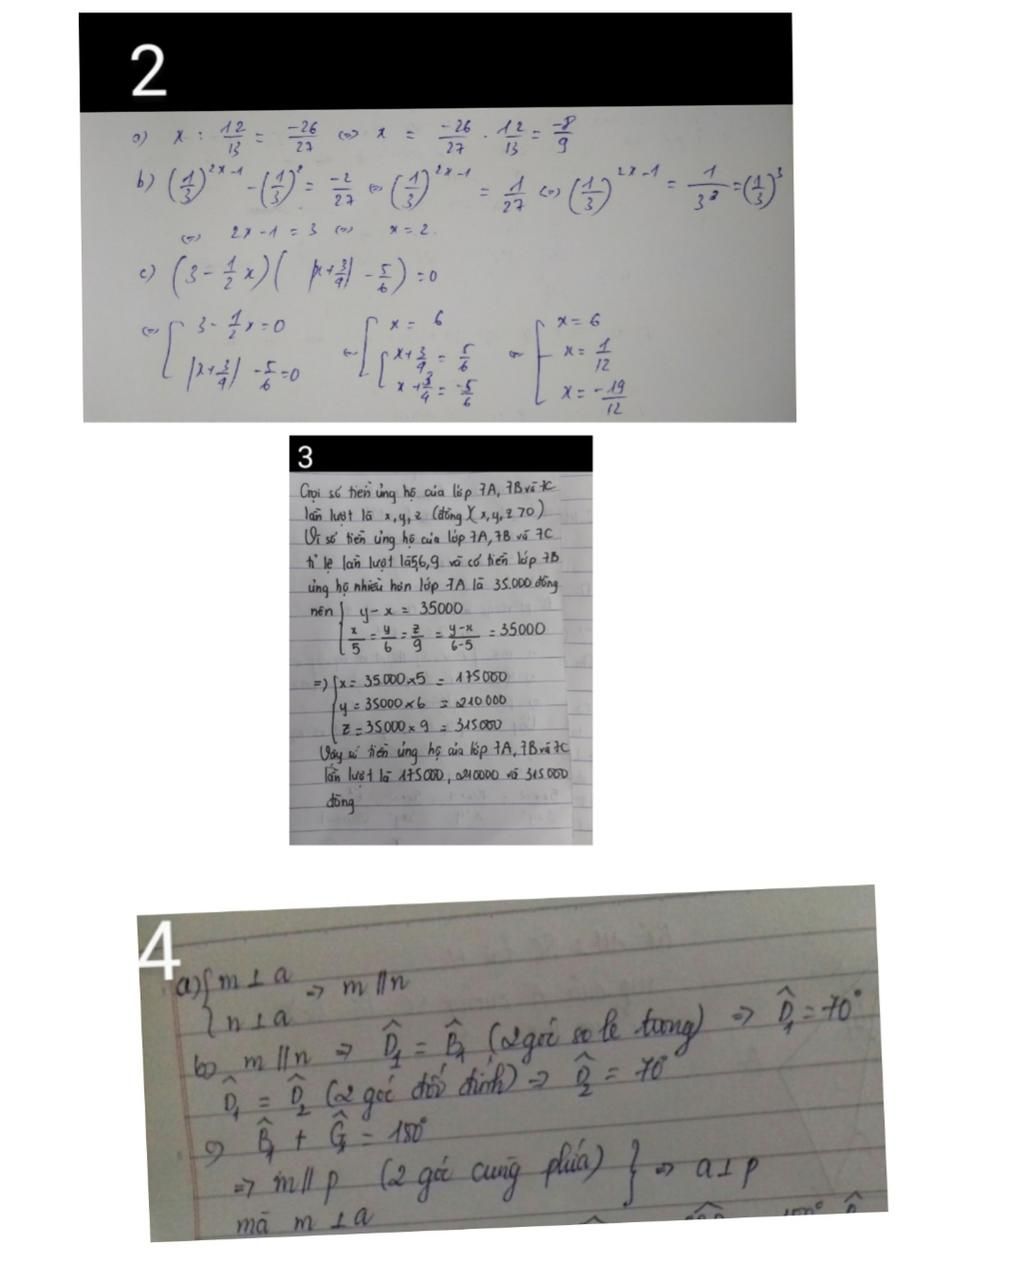 2
a) x : 12/13 = -26/27 ⇔ x = -26/27 . 12/13 = -8/9
b) (1/3)^(2x-1) - (1/3)^2 = -2/27 ⇔ (1/3)^(2x-1) = 1/27 ⇔ (1/3)^(2x-1) = 1/3^3 = (1/3)^3
⇔ 2x-1 = 3 ⇔ x = 2.
c) (3 - 1/2 x)( |x+3/4| - 5/6) = 0
⇔ [ 3 - 1/2 x = 0 ⇔ [ x = 6 ⇔ [ x = 6
|x+3/4| - 5/6 = 0 [ x+3/4 = 5/6 x = 1/12
x+3/4 = -5/6 x = -19/12
3
Gọi số tiền ủng hộ của lớp 7A, 7B và 7C
lần lượt là x, y, z (đồng)(x, y, z >0)
Vì số tiền ủng hộ của lớp 7A, 7B và 7C
tỉ lệ lần lượt là 5,6,9 và có tiền lớp 7B
ủng hộ nhiều hơn lớp 7A là 35.000 đồng
nên { y - x = 35000
x/5 = y/6 = z/9 = y-x/6-5 = 35000
=> { x = 35.000 × 5 = 175000
y = 35000 × 6 = 210000
z = 35000 × 9 = 315000
Vậy số tiền ủng hộ của lớp 7A, 7B và 7C
lần lượt là 175000, 210000 và 315000
đồng
4
a) { m ⊥ a => m // n
n ⊥ a
b) m // n => D̂1 = B̂1 (2 góc so le trong) => D̂1 = 70°
D̂1 = D̂2 (2 góc đối đỉnh) => D̂2 = 70°
c) B̂1 + Ĉ1 = 180°
=> m // p (2 góc cùng phía) } => a ⊥ p
mà m ⊥ a